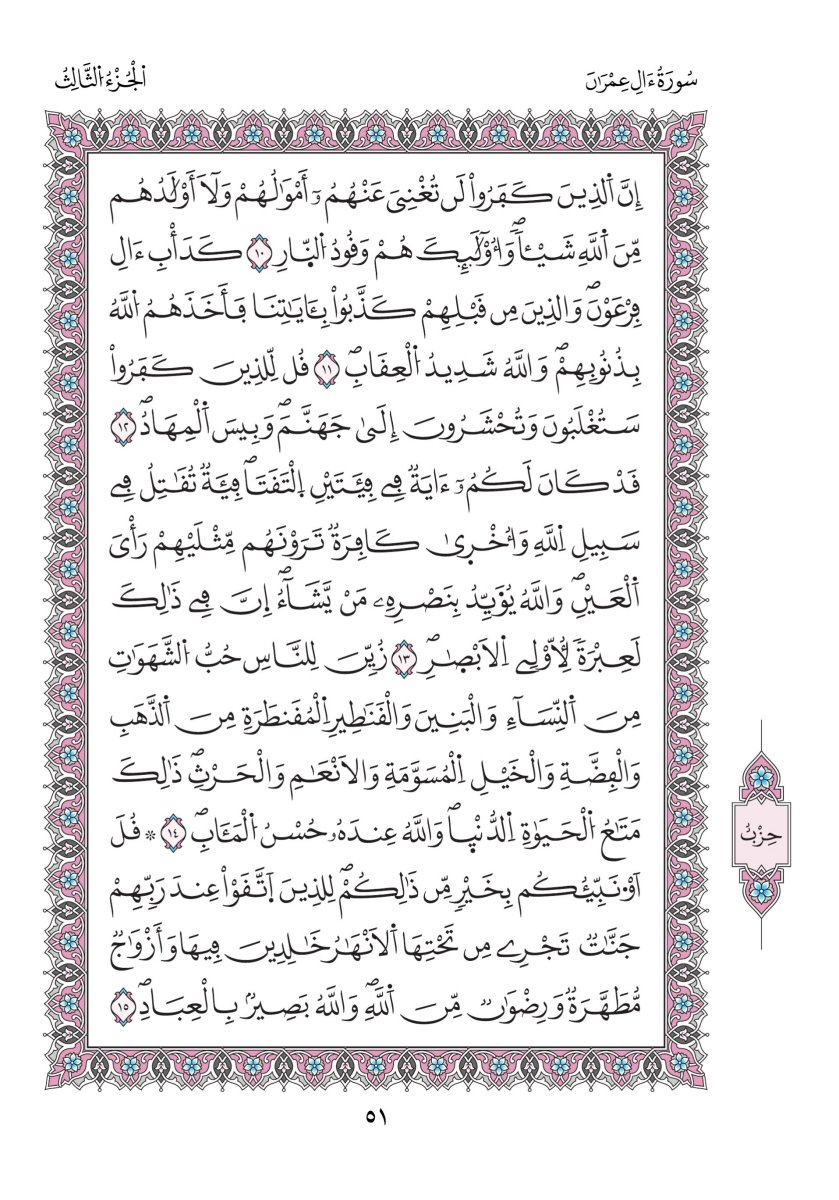 سُورَةُ ءَالِ عِمْرَٰنَ
اَلْجُزْءُ اُلثَّالِثُ
إِنَّ اَلذِينَ كَفَرُواْ لَن تُغْنِيَ عَنْهُمُۥٓ أَمْوَٰلُهُمْ وَلَآ أَوْلَٰدُهُم
مِّنَ اَللَّهِ شَيْـٔاٗۖ وَأُوْلَٰٓئِكَ هُمْ وَقُودُ اُلنّ۪ارِ ١٠ كَدَأْبِ ءَالِ
فِرْعَوْنَۖ وَالذِينَ مِن قَبْلِهِمْ كَذَّبُواْ بِـَٔايَٰتِنَا فَأَخَذَهُمُ اُللَّهُ
بِذُنُوبِهِمْۖ وَاللَّهُ شَدِيدُ اُلْعِقَابِۖ ١١ قُل لِّلذِينَ كَفَرُواْ
سَتُغْلَبُونَ وَتُحْشَرُونَ إِلَىٰ جَهَنَّمَۖ وَبِيسَ اَلْمِهَادُۖ ١٢
قَدْ كَانَ لَكُمُۥٓ ءَايَةٞ فِے فِئَتَيْنِ اِلْتَقَتَاۖ فِئَةٞ تُقَٰتِلُ فِے
سَبِيلِ اِللَّهِ وَأُخْر۪يٰ كَافِرَةٞ تَرَوْنَهُم مِّثْلَيْهِمْ رَأْيَ
اَلْعَيْنِۖ وَاللَّهُ يُؤَيِّدُ بِنَصْرِهِۦ مَنْ يَّشَآءُۖ اِنَّ فِے ذَٰلِكَ
لَعِبْرَةٗ لِّأُوْلِے اِلَابْصٰ۪رِۖ ١٣ زُيِّنَ لِلنَّاسِ حُبُّ اُلشَّهَوَٰتِ
مِنَ اَلنِّسَآءِ وَالْبَنِينَ وَالْقَنَٰطِيرِ اِلْمُقَنطَرَةِ مِنَ اَلذَّهَبِ
وَالْفِضَّةِ وَالْخَيْلِ اِلْمُسَوَّمَةِ وَالَانْعَٰمِ وَالْحَرْثِۖ ذَٰلِكَ
مَتَٰعُ اُلْحَيَوٰةِ اِلدُّنْي۪اۖ وَاللَّهُ عِندَهُۥ حُسْنُ اُلْمَـَٔابِۖ ١٤ ۞ قُلَ
اَوْ۬نَبِّئُكُم بِخَيْرٖ مِّن ذَٰلِكُمْۖ لِلذِينَ اَتَّقَوْاْ عِندَ رَبِّهِمْ
جَنَّٰتٞ تَجْرِے مِن تَحْتِهَا اَلَانْهَٰرُ خَٰلِدِينَ فِيهَا وَأَزْوَٰجٞ
مُّطَهَّرَةٞ وَرِضْوَٰنٞ مِّنَ اَللَّهِۖ وَاللَّهُ بَصِيرُۢ بِالْعِبَادِۖ ١٥
حِزْبٌ
٥١